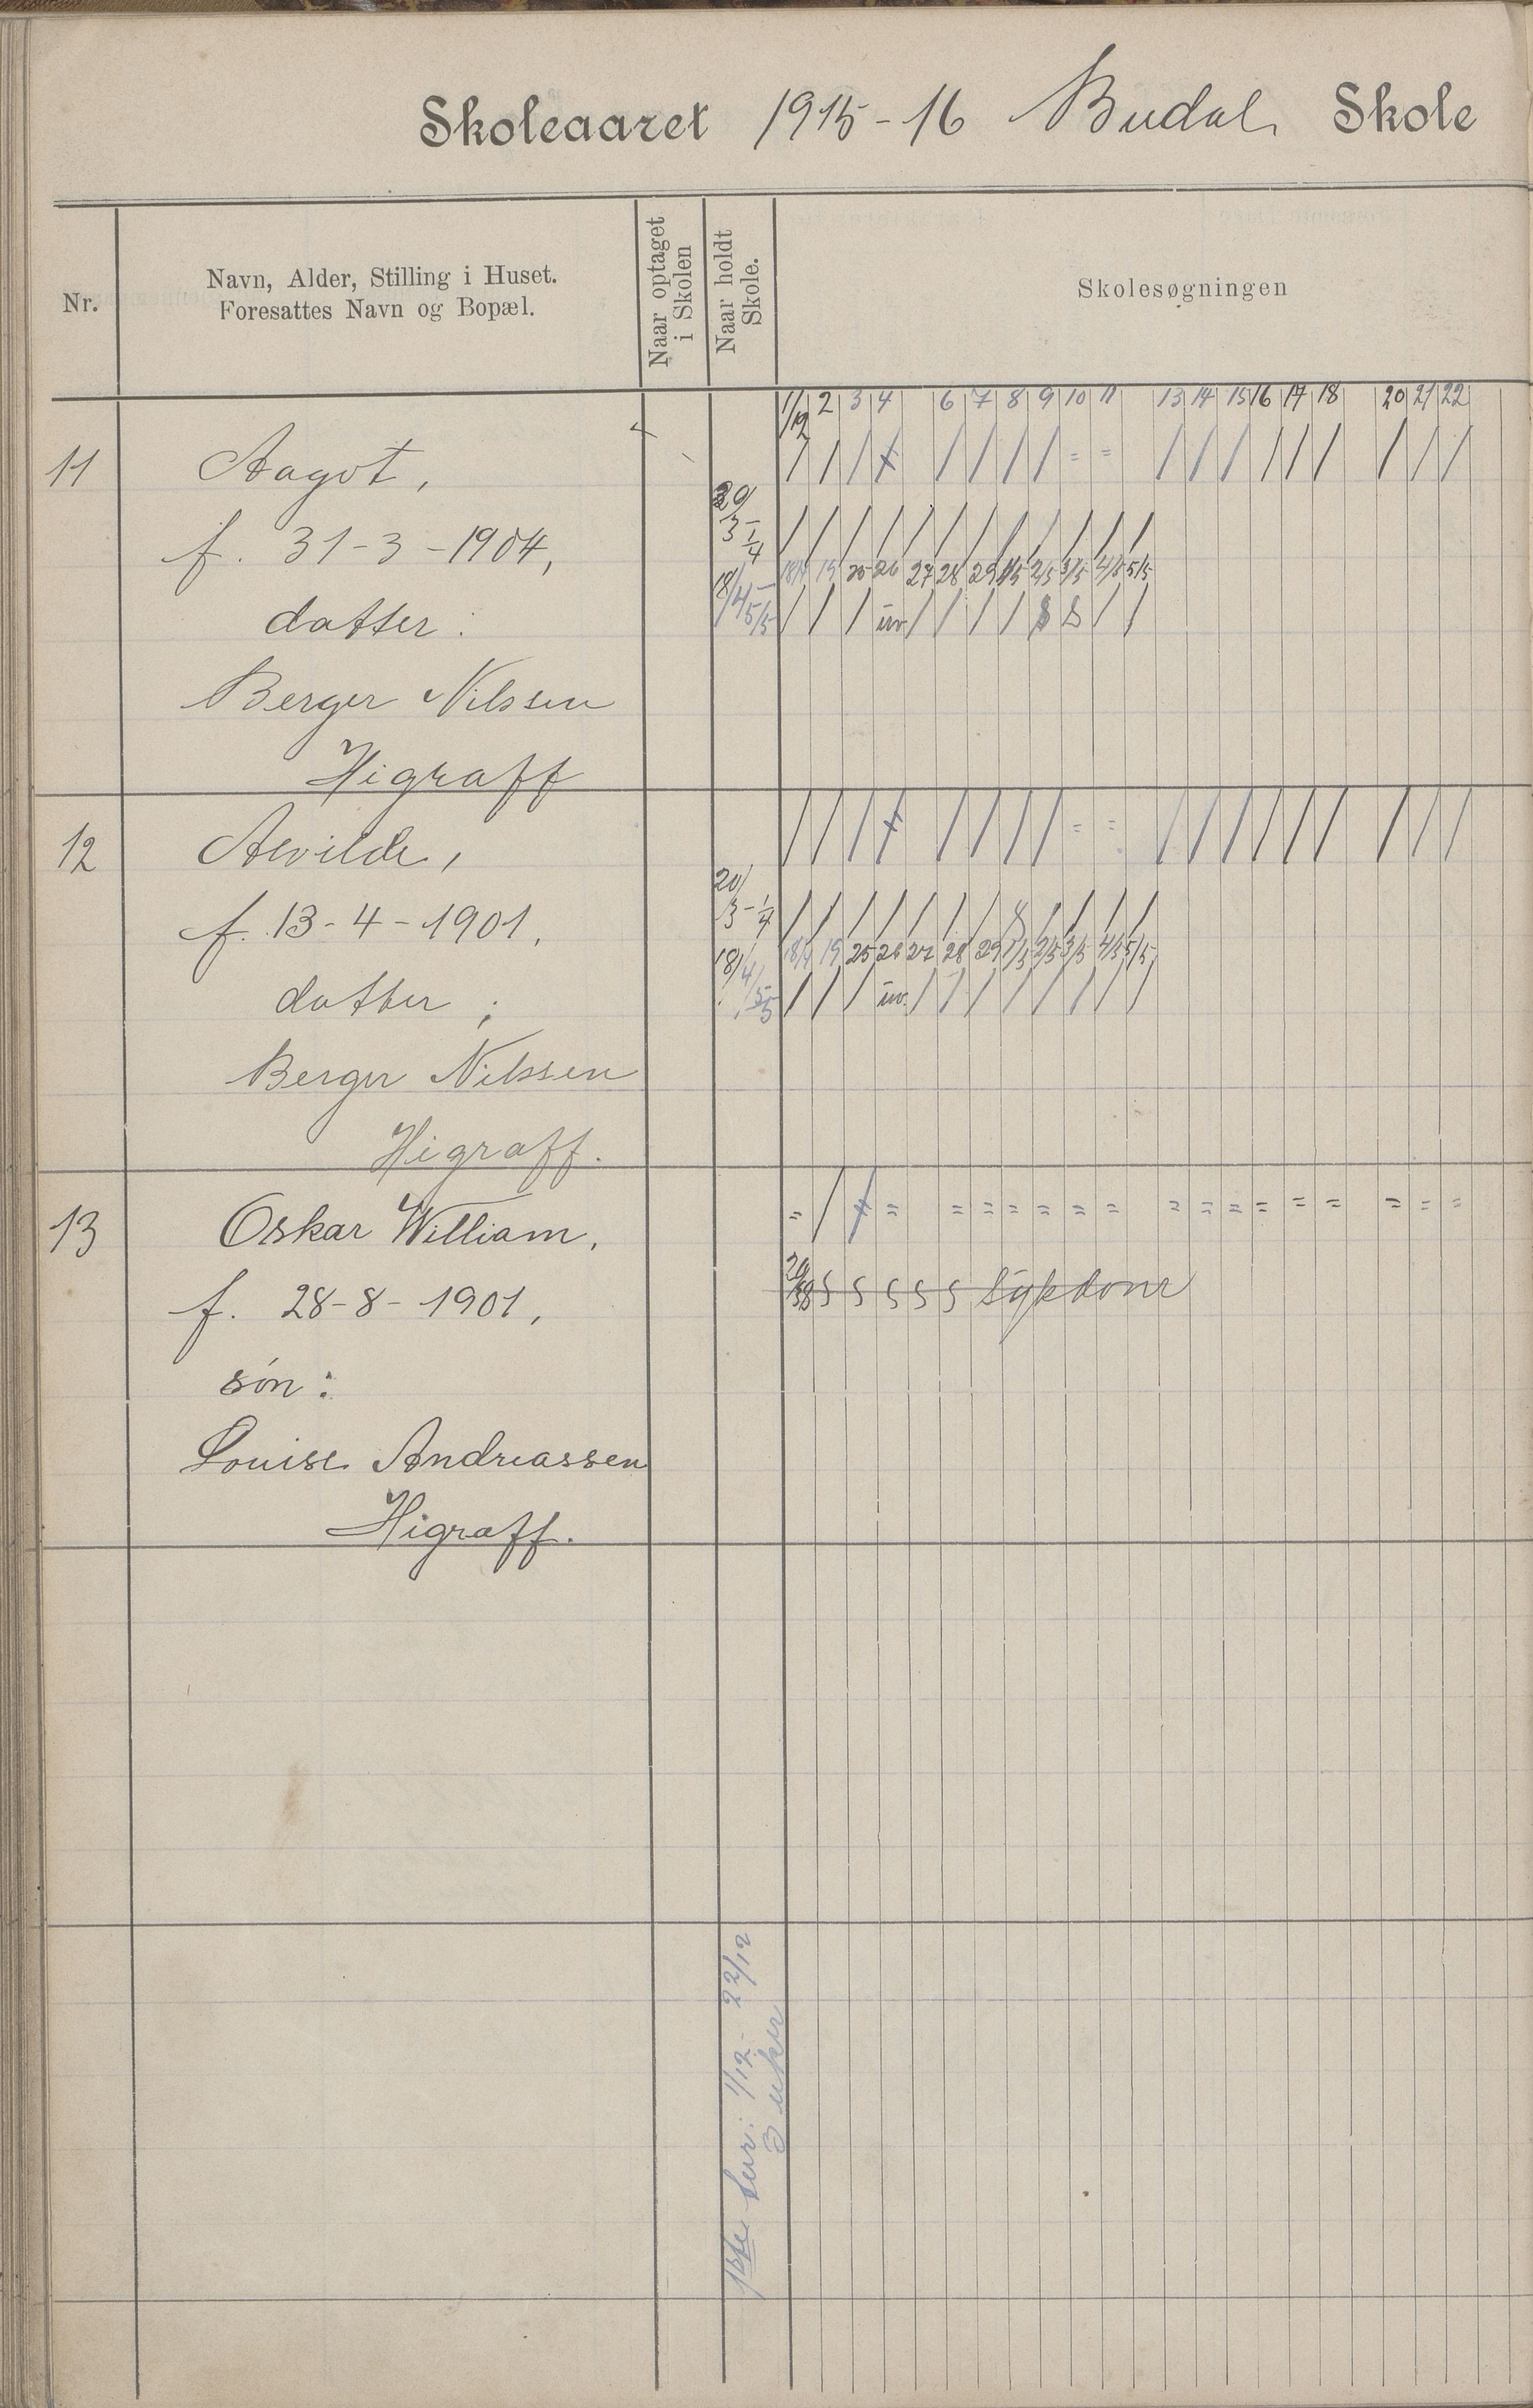 Skoleaaret 1915-16 Budal Skole
Nr.
Navn, Alder, Stilling i Huset.
Foresattes Navn og Bopæl.
Naar optaget
i Skolen
Naar holdt
Skole.
Skolesøgningen
1/12 2 3 4 6 7 8 9 10 11 13 14 15 16 17 18 20 21 22
11 Aagot, / / / + / / / / = = / / / / / / / / /
f. 31-3-1904, 20/3-1/4 / / / / / / / / / / / /
18/4 19 25 26 27 28 29 1/5 2/5 3/5 4/5 5/5
datter: 18/4-5/5 / / / uv. / / / / S S / /
Berger Nilssen
Higraff
12 Alvilde, / / / + / / / / = = / / / / / / / / /
f. 13-4-1901. 20/3-1/4 / / / / / / / / / / / /
18/4 19 25 26 27 28 29 1/5 2/5 3/5 4/5 5/5
datter; 18/4-5/5 / / / uv. / / / / / / / /
Berger Nilssen
Higraff.
13 Oskar William, = / + = = = = = = = = = = = = = = = =
f. 28-8-1901, 20/3 S S S S S S Sykdom
søn:
Louise Andreassen
Higraff.
1ste tur: 1/12-22/12
3 uker